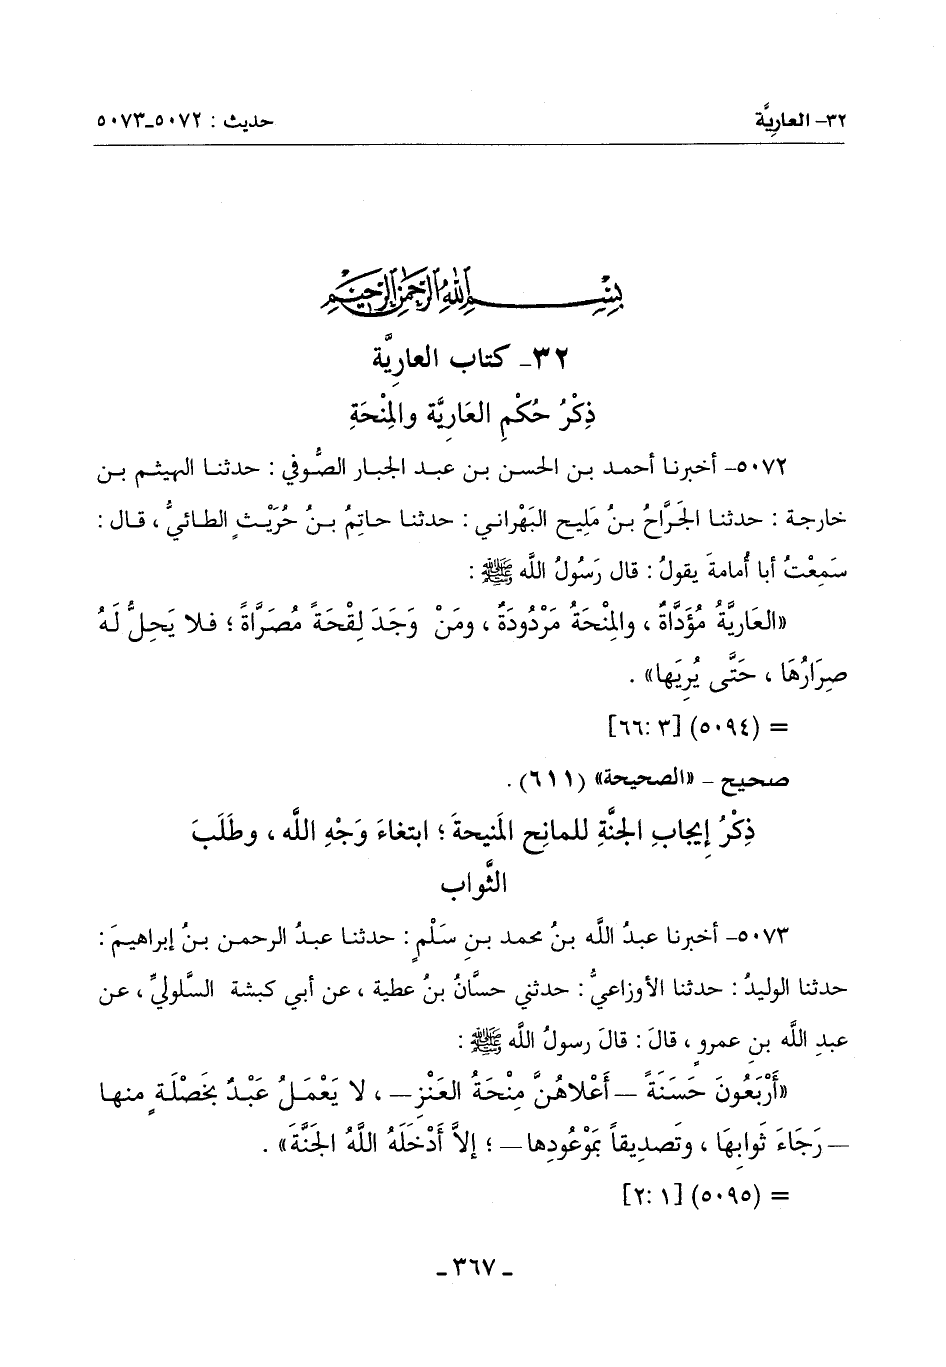 ٣٢- العاريَّة
حديث : ٥٠٧٢-٥٠٧٣
بِسْمِ اللهِ الرَّحْمٰنِ الرَّحِيْمِ
٣٢- كتاب العارِيَّة
ذِكْرُ حُكْمِ العَارِيَّة والمِنْحَةِ
٥٠٧٢- أخبرنا أحمد بن الحسن بن عبد الجبار الصُّوفي : حدثنا الهيثم بن
خارجة : حدثنا الجَرَّاحُ بنُ مَلِيح البَهْراني : حدثنا حاتِمُ بنُ حُرَيْثٍ الطائيُّ ، قال :
سَمِعْتُ أبا أُمامةَ يقولُ : قال رَسُولُ اللَّه ﷺ :
«العَارِيَّةُ مُؤَدَّاةٌ ، والمِنْحَةُ مَرْدُودَةٌ ، ومَنْ وَجَدَ لِقْحَةً مُصَرَّاةً ؛ فلا يَحِلُّ لَهُ
صِرَارُهَا ، حَتَّى يُرِيَها» .
= (٥٠٩٤) [٣ :٦٦]
صحيح – «الصحيحة» (٦١١) .
ذِكْرُ إِيجابِ الجَنَّةِ للمانِحِ المَنيحةَ ؛ ابتغاءَ وَجْهِ اللَّه ، وطَلَبَ
الثَّواب
٥٠٧٣- أخبرنا عبدُ اللَّه بنُ محمد بنِ سَلْمٍ : حدثنا عبدُ الرحمن بنُ إبراهيمَ :
حدثنا الوليدُ : حدثنا الأوزاعيُّ : حدثني حسَّانُ بنُ عطية ، عن أبي كبشة السَّلُوليِّ ، عن
عبدِ اللَّه بنِ عمرٍو ، قالَ : قالَ رسولُ اللَّه ﷺ :
«أَرْبَعُونَ حَسَنَةً – أَعْلاهُنَّ مِنْحَةُ العَنْزِ – ، لا يَعْمَلُ عَبْدٌ بخَصْلَةٍ منها
– رَجَاءَ ثَوابِهَا ، وتَصديقاً بمَوْعُودِها – ؛ إلاَّ أَدْخَلَهُ اللَّهُ الجَنَّةَ» .
= (٥٠٩٥) [١ :٢]
- ٣٦٧ -